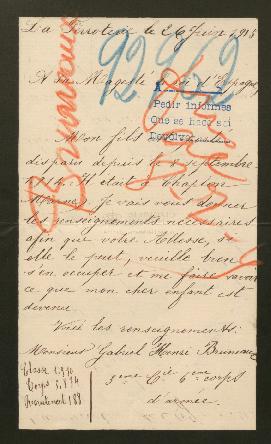 La Ferrotière le 26 Juin 1915
92962
A Sa Majesté le roi d'Espagne,
Pedir informes
Que se hace así
Devolver
Mon fils
disparu depuis le 8 septembre
1914. Il était à
Marne. Je vais vous donner
les renseignements nécessaires
afin que votre Altesse, si
elle le peut, veuille bien
s'en occuper et me faire savoir
ce que mon cher enfant est
devenu.
Voici les renseignements:
Monsieur Gabriel Henri Bruneau
Classe 1910
Corps
Recrutement 188
9eme Cie 6eme corps
d'armée.
Bruneau